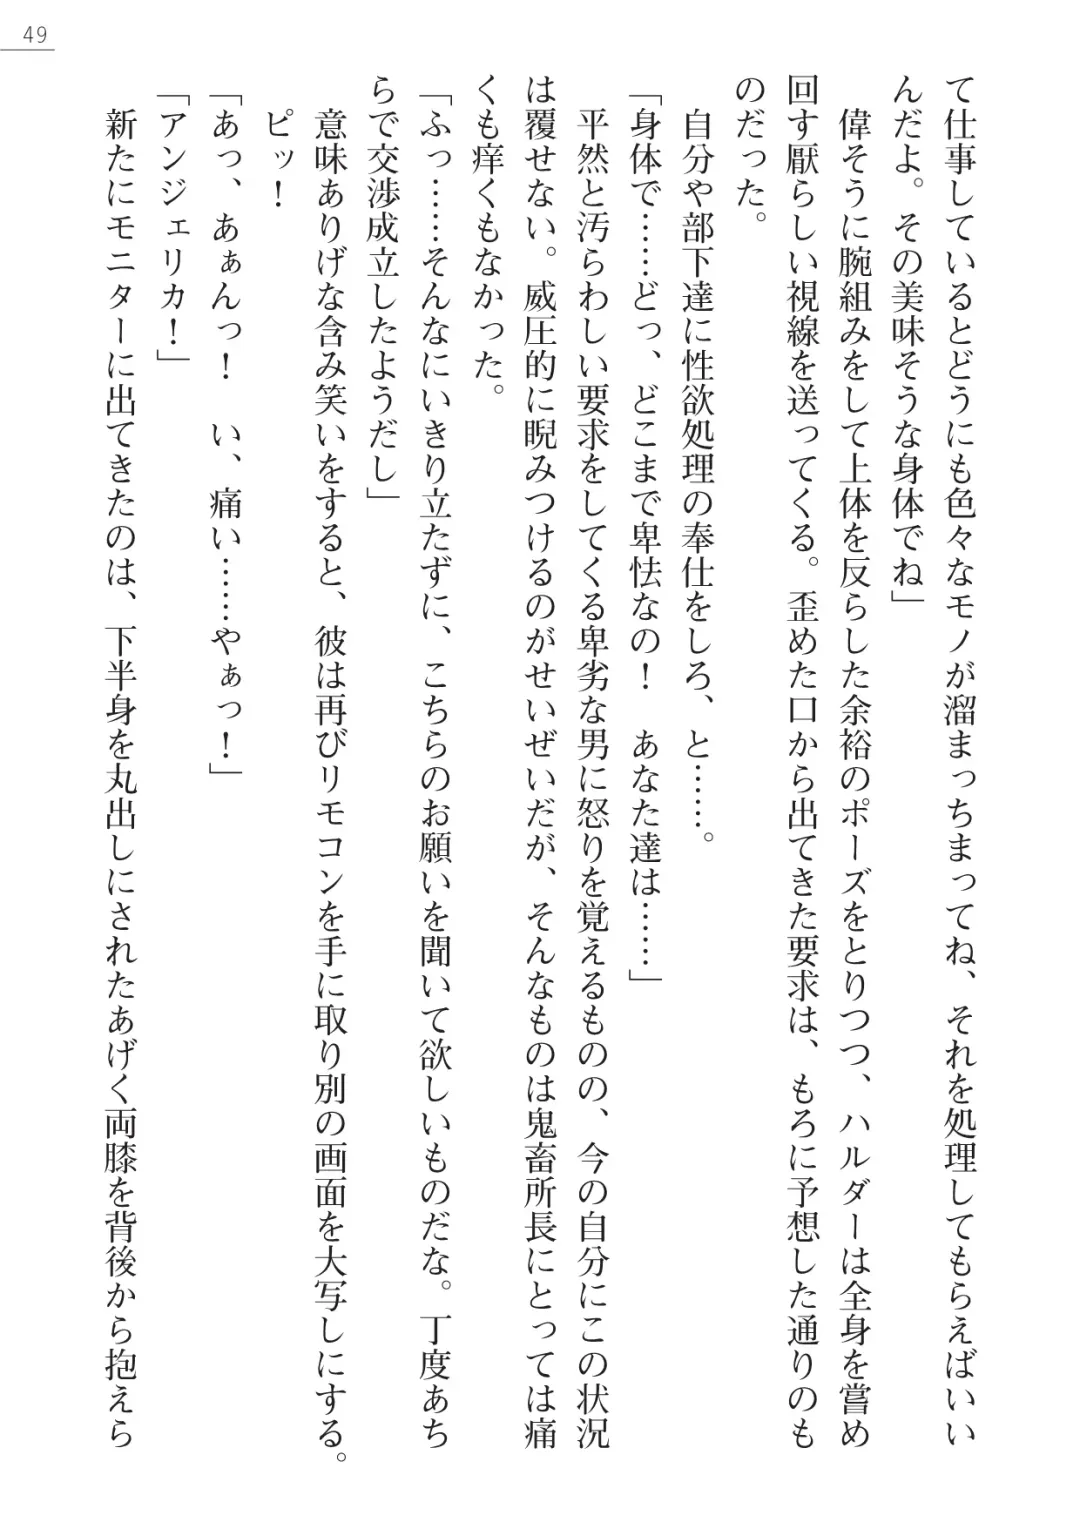 49
て仕事しているとどうにも色々なモノが溜まっちまってね、それを処理してもらえばいい
んだよ。その美味そうな身体でね」
　偉そうに腕組みをして上体を反らした余裕のポーズをとりつつ、ハルダーは全身を嘗め
回す厭らしい視線を送ってくる。歪めた口から出てきた要求は、もろに予想した通りのも
のだった。
　自分や部下達に性欲処理の奉仕をしろ、と……。
「身体で……どっ、どこまで卑怯なの！　あなた達は……」
　平然と汚らわしい要求をしてくる卑劣な男に怒りを覚えるものの、今の自分にこの状況
は覆せない。威圧的に睨みつけるのがせいぜいだが、そんなものは鬼畜所長にとっては痛
くも痒くもなかった。
「ふっ……そんなにいきり立たずに、こちらのお願いを聞いて欲しいものだな。丁度あち
らで交渉成立したようだし」
　意味ありげな含み笑いをすると、彼は再びリモコンを手に取り別の画面を大写しにする。
　ピッ！
「あっ、あぁんっ！　い、痛い……やぁっ！」
「アンジェリカ！」
　新たにモニターに出てきたのは、下半身を丸出しにされたあげく両膝を背後から抱えら